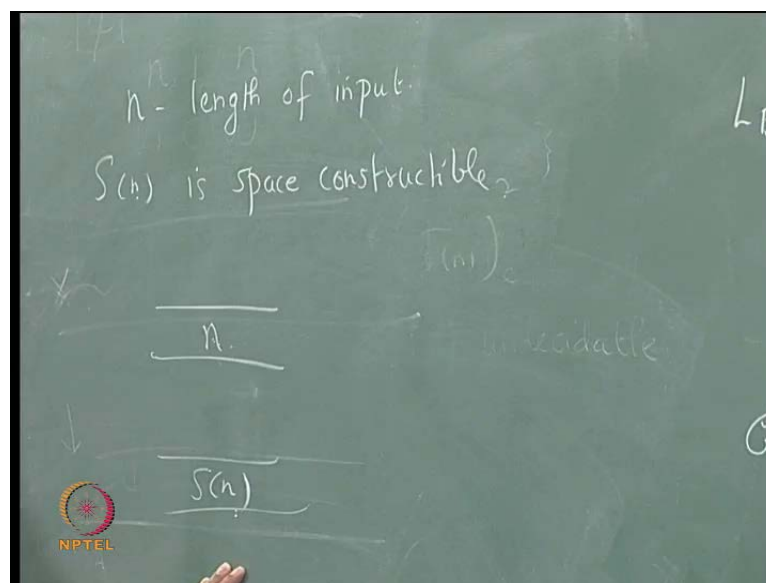 n - length of input.
S(n) is space constructible
n.
S(n)
NPTEL